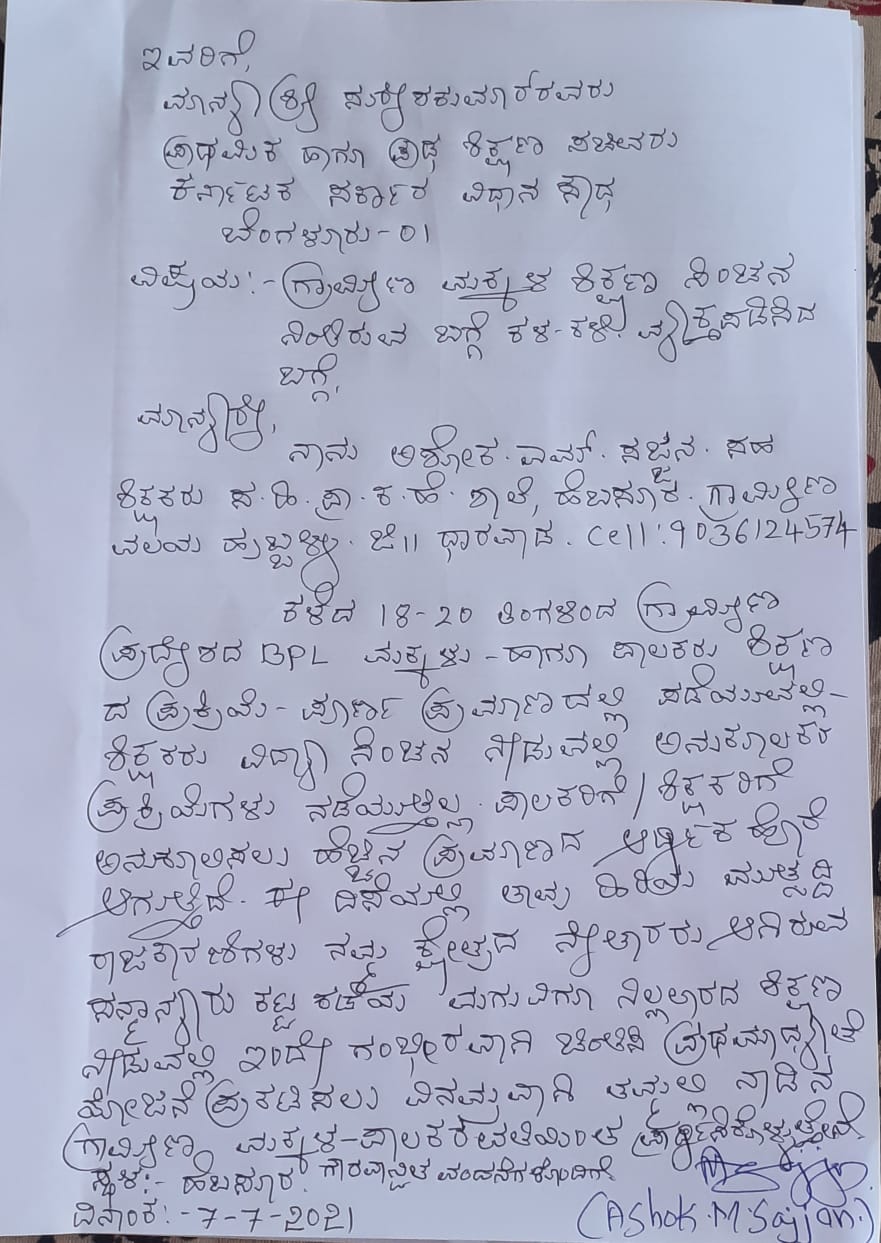 ಇವರಿಗೆ,
ಮಾನ್ಯ ಶ್ರೀ ಸುರೇಶಕುಮಾರರವರು
ಪ್ರಾಥಮಿಕ ಹಾಗೂ ಪ್ರೌಢ ಶಿಕ್ಷಣ ಸಚೀವರು
ಕರ್ನಾಟಕ ಸರ್ಕಾರ ವಿಧಾನ ಸೌಧ
ಬೆಂಗಳೂರು-01
ವಿಷಯ:- ಗ್ರಾಮೀಣ ಮಕ್ಕಳ ಶಿಕ್ಷಣ ಸಿಂಚನ
ನಿಂತಿರುವ ಬಗ್ಗೆ ಕಳ-ಕಳಿ ವ್ಯಕ್ತಪಡಿಸಿದ
ಬಗ್ಗೆ,
ಮಾನ್ಯರೇ,
ನಾನು ಅಶೋಕ. ಎಮ್. ಸಜ್ಜನ. ಸಹ
ಶಿಕ್ಷಕರು ಸ. ಹಿ. ಪ್ರಾ. ಕ. ಹೆ. ಶಾಲೆ, ಹೆಬಸೂರ. ಗ್ರಾಮೀಣ
ವಲಯ ಹುಬ್ಬಳ್ಳಿ. ಜಿ|| ಧಾರವಾಡ. Cell:9036124574
ಕಳೆದ 18-20 ತಿಂಗಳಿಂದ ಗ್ರಾಮೀಣ
ಪ್ರದೇಶದ BPL ಮಕ್ಕಳು-ಹಾಗೂ ಪಾಲಕರು ಶಿಕ್ಷಣ
ದ ಪ್ರಕ್ರಿಯೆ-ಪೂರ್ಣ ಪ್ರಮಾಣದಲ್ಲಿ ಪಡೆಯುವಲ್ಲಿ-
ಶಿಕ್ಷಕರು ವಿದ್ಯಾ ಸಿಂಚನ ನೀಡುವಲ್ಲಿ ಅನುಕೂಲಕರ
ಪ್ರಕ್ರಿಯೆಗಳು ನಡೆಯುತ್ತಿಲ್ಲ. ಪಾಲಕರಿಗೆ/ಶಿಕ್ಷಕರಿಗೆ
ಅನುಕೂಲಿಸಲು ಹೆಚ್ಚಿನ ಪ್ರಮಾಣದ ಆರ್ಥಿಕ ಹೊರೆ
ಆಗುತ್ತಿದೆ. ಈ ದಿಸೆಯಲ್ಲಿ ತಾವು ಹಿರಿಯ ಮುತ್ಸದ್ದಿ
ರಾಜಕಾರಣಿಗಳು ನಮ್ಮ ಕ್ಷೇತ್ರದ ನೇತಾರರು ಆಗಿರುವ
ಸನ್ಮಾನ್ಯರು ಕಟ್ಟ ಕಡೆಯ ಮಗುವಿಗೂ ನಿಲ್ಲಲಾರದ ಶಿಕ್ಷಣ
ನೀಡುವಲ್ಲಿ ಇಂದೇ ಗಂಭೀರವಾಗಿ ಚಿಂತಿಸಿ ಪ್ರಥಮಾದ್ಯತೆ
ಯೋಜನೆ ಪ್ರಕಟಿಸಲು ವಿನಮ್ರವಾಗಿ ತಮ್ಮಲ್ಲಿ ನಾಡಿನ
ಗ್ರಾಮೀಣ ಮಕ್ಕಳ-ಪಾಲಕರ ಪರವಾಗಿ ಪ್ರಾರ್ಥಿಸಿಕೊಳ್ಳುತ್ತೇನೆ.
ಸ್ಥಳ:- ಹೆಬಸೂರ. ಗೌರವಾನ್ವಿತ ವಂದನೆಗಳೊಂದಿಗೆ
ದಿನಾಂಕ:-7-7-2021
(Ashok.M.Sajjan.)